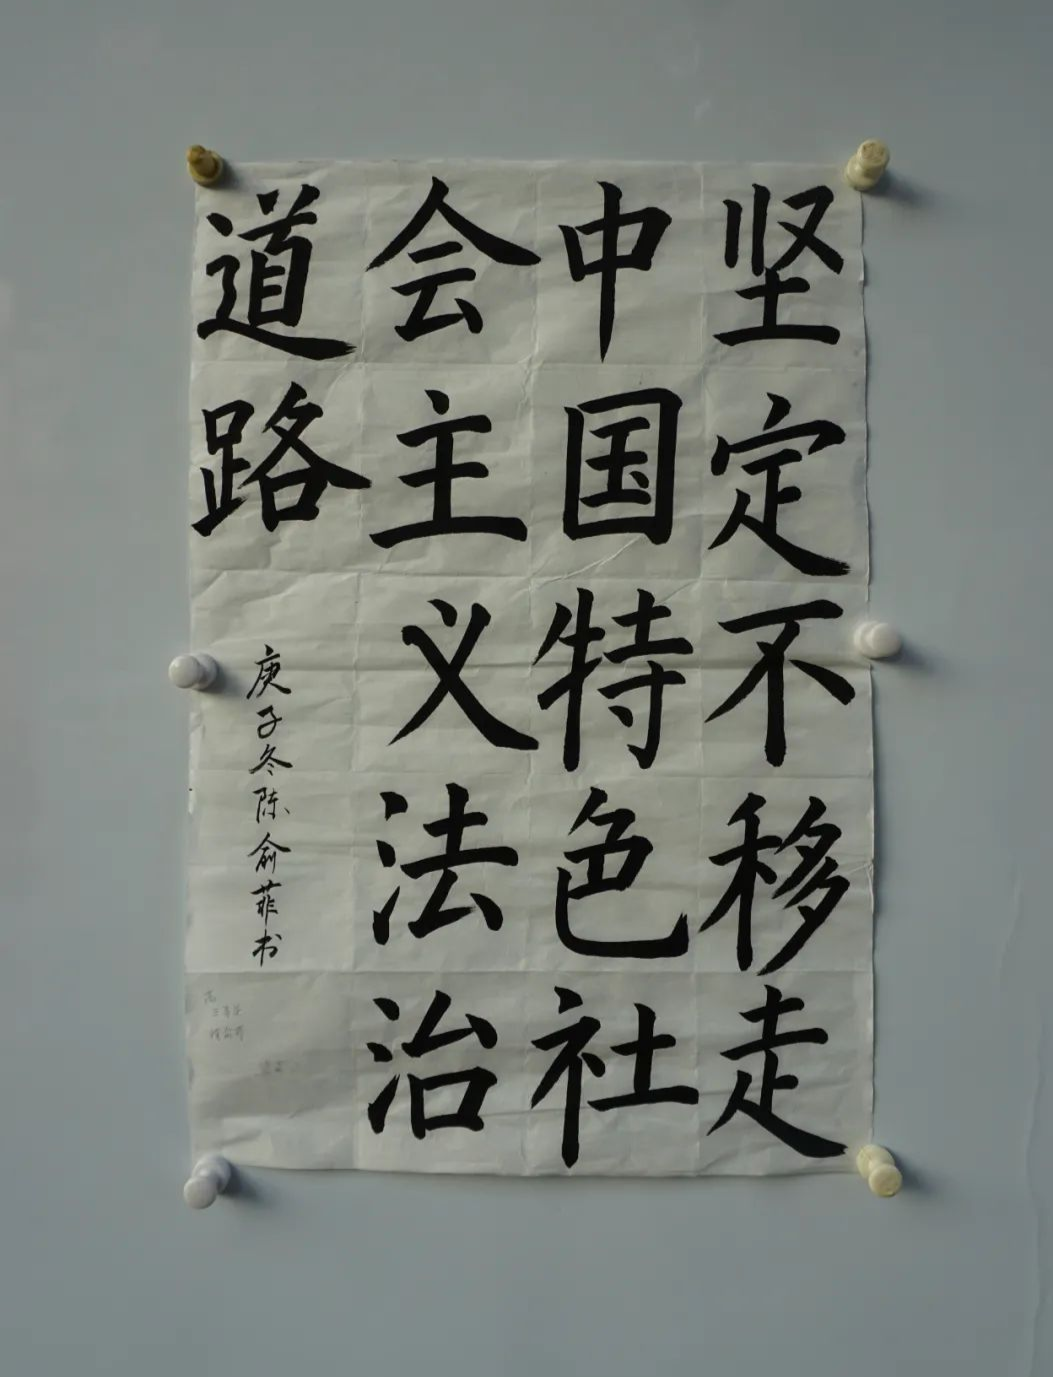 坚定不移走
中国特色社
会主义法治
道路
庚子冬陈俞菲书